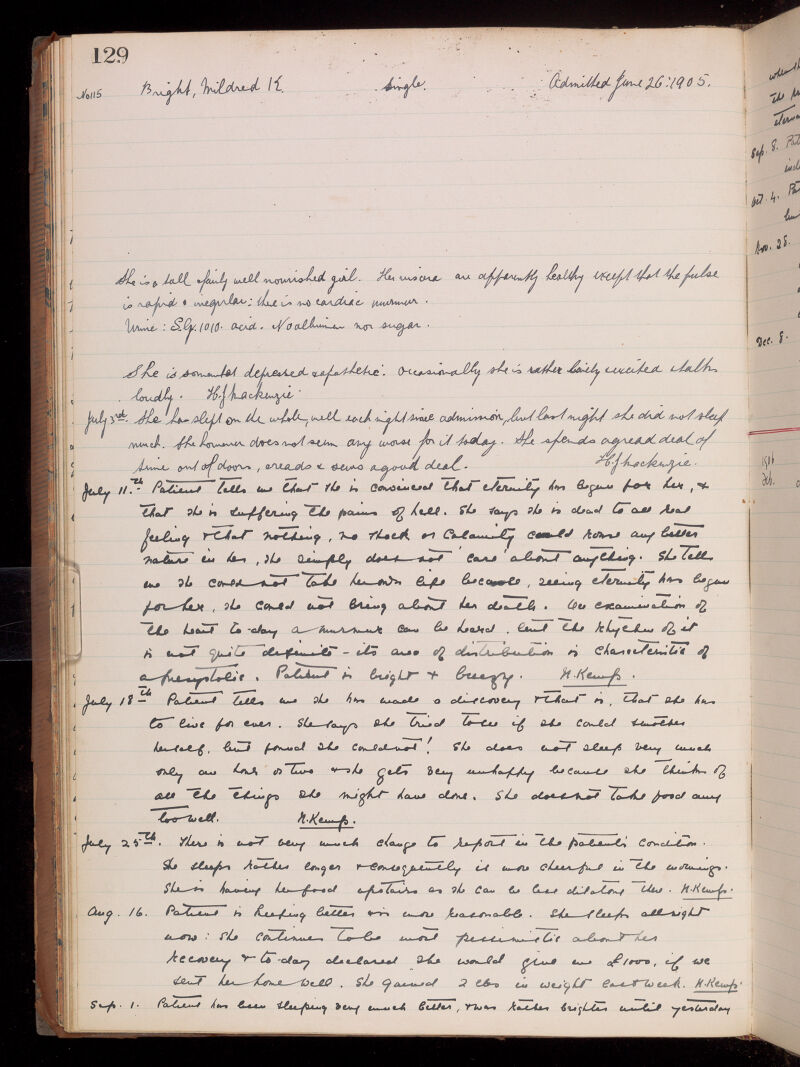 129
No 115 Bright, Mildred K. Single. Admitted June 26: 1905.
She is a tall fairly well nourished girl. Her viscera are apparently healthy except that the pulse
is rapid & irregular: there is no cardiac murmur.
Urine: S.G. 1010. acid. No albumen nor sugar.
She is somewhat depressed & apathetic. Occasionally she is rather excited & talks
loudly. H.J. Mackenzie.
July 3rd She has slept on the whole, well each night since admission, but last night she did not sleep
much. She however does not seem any worse for it today. She spends a great deal of
time out of doors, & reads & sews a good deal. H.J. Mackenzie.
July 11.th Patient tells me that she is convinced that eternity has begun for her, &
that she is suffering the pains of hell. She says she is dead to all real
feeling & that nothing, no shock or calamity could rouse any better
nature in her, she simply does not care about anything. She tells
me she could not take her own life because, seeing eternity has begun
for her, she could not bring about her death. On examination of
the heart to-day a murmur can be heard, but the rhythm of it
is not quite definite - its area of distribution is characteristic of
a presystolic. Patient is bright & breezy. N. Kemp.
July 18th Patient tells me she has made a discovery & that is, that she has
to live for ever. She says she tried to see if she could smother
herself, but found she could not! She does not sleep very much
only an hour or two & she gets very unhappy because she thinks of
all the things she might have done. She does not take food any
too well. N. Kemp.
July 25th. There is not very much change to report in the patient's condition.
She sleeps rather longer & consequently is more cheerful in the mornings.
She is having her food upstairs as she can be less dilatory there. N. Kemp.
Aug. 16. Patient is keeping better & is more reasonable. She sleeps all right
now: she continues to be most pessimistic about her
recovery & to-day declared she would give me £1000, if we
sent her home well. She gained 2 lbs in weight last week. N. Kemp.
Sep. 1. Patient has been sleeping very much better, & was rather brighter until yesterday
Sep. 8. Pat
Oct. 4. Pa
Nov. 28.
Dec. 8.
1906
Feb.